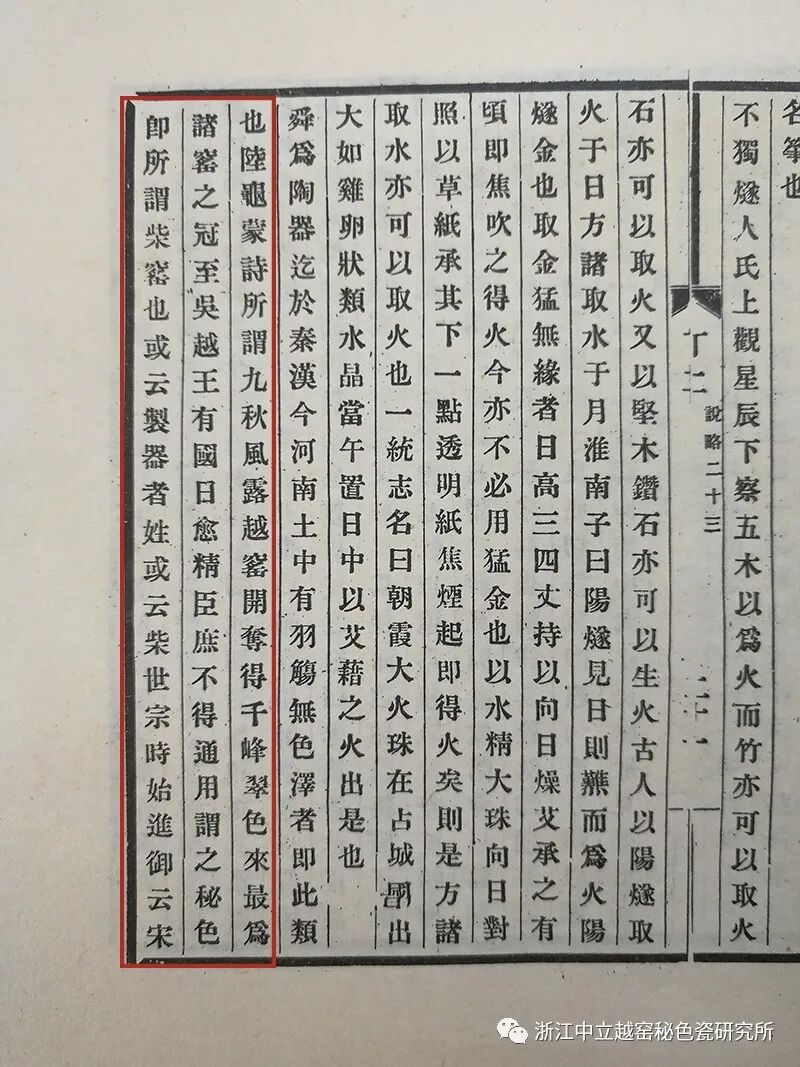 名筆也
不獨燧人氏上觀星辰下察五木以爲火而竹亦可以取火
說略二十三
二十一
石亦可以取火又以堅木鑽石亦可以生火古人以陽燧取
火于日方諸取水于月淮南子曰陽燧見日則爇而爲火陽
燧金也取金猛無緣者日高三四丈持以向日燥艾承之有
頃即焦吹之得火今亦不必用猛金也以水精大珠向日對
照以草紙承其下一點透明紙焦煙起即得火矣則是方諸
取水亦可以取火也一統志名曰朝霞大火珠在占城國出
大如雞卵狀類水晶當午置日中以艾藉之火出是也
舜爲陶器迄於秦漢今河南土中有羽觴無色澤者即此類
也陸龜蒙詩所謂九秋風露越窰開奪得千峰翠色來最爲
諸窰之冠至吳越王有國日愈精臣庶不得通用謂之秘色
卽所謂柴窰也或云製器者姓或云柴世宗時始進御云宋
浙江中立越窑秘色瓷研究所